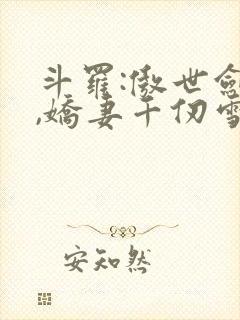 斗羅:傲世劍
,嬌妻千仞雪
安知然